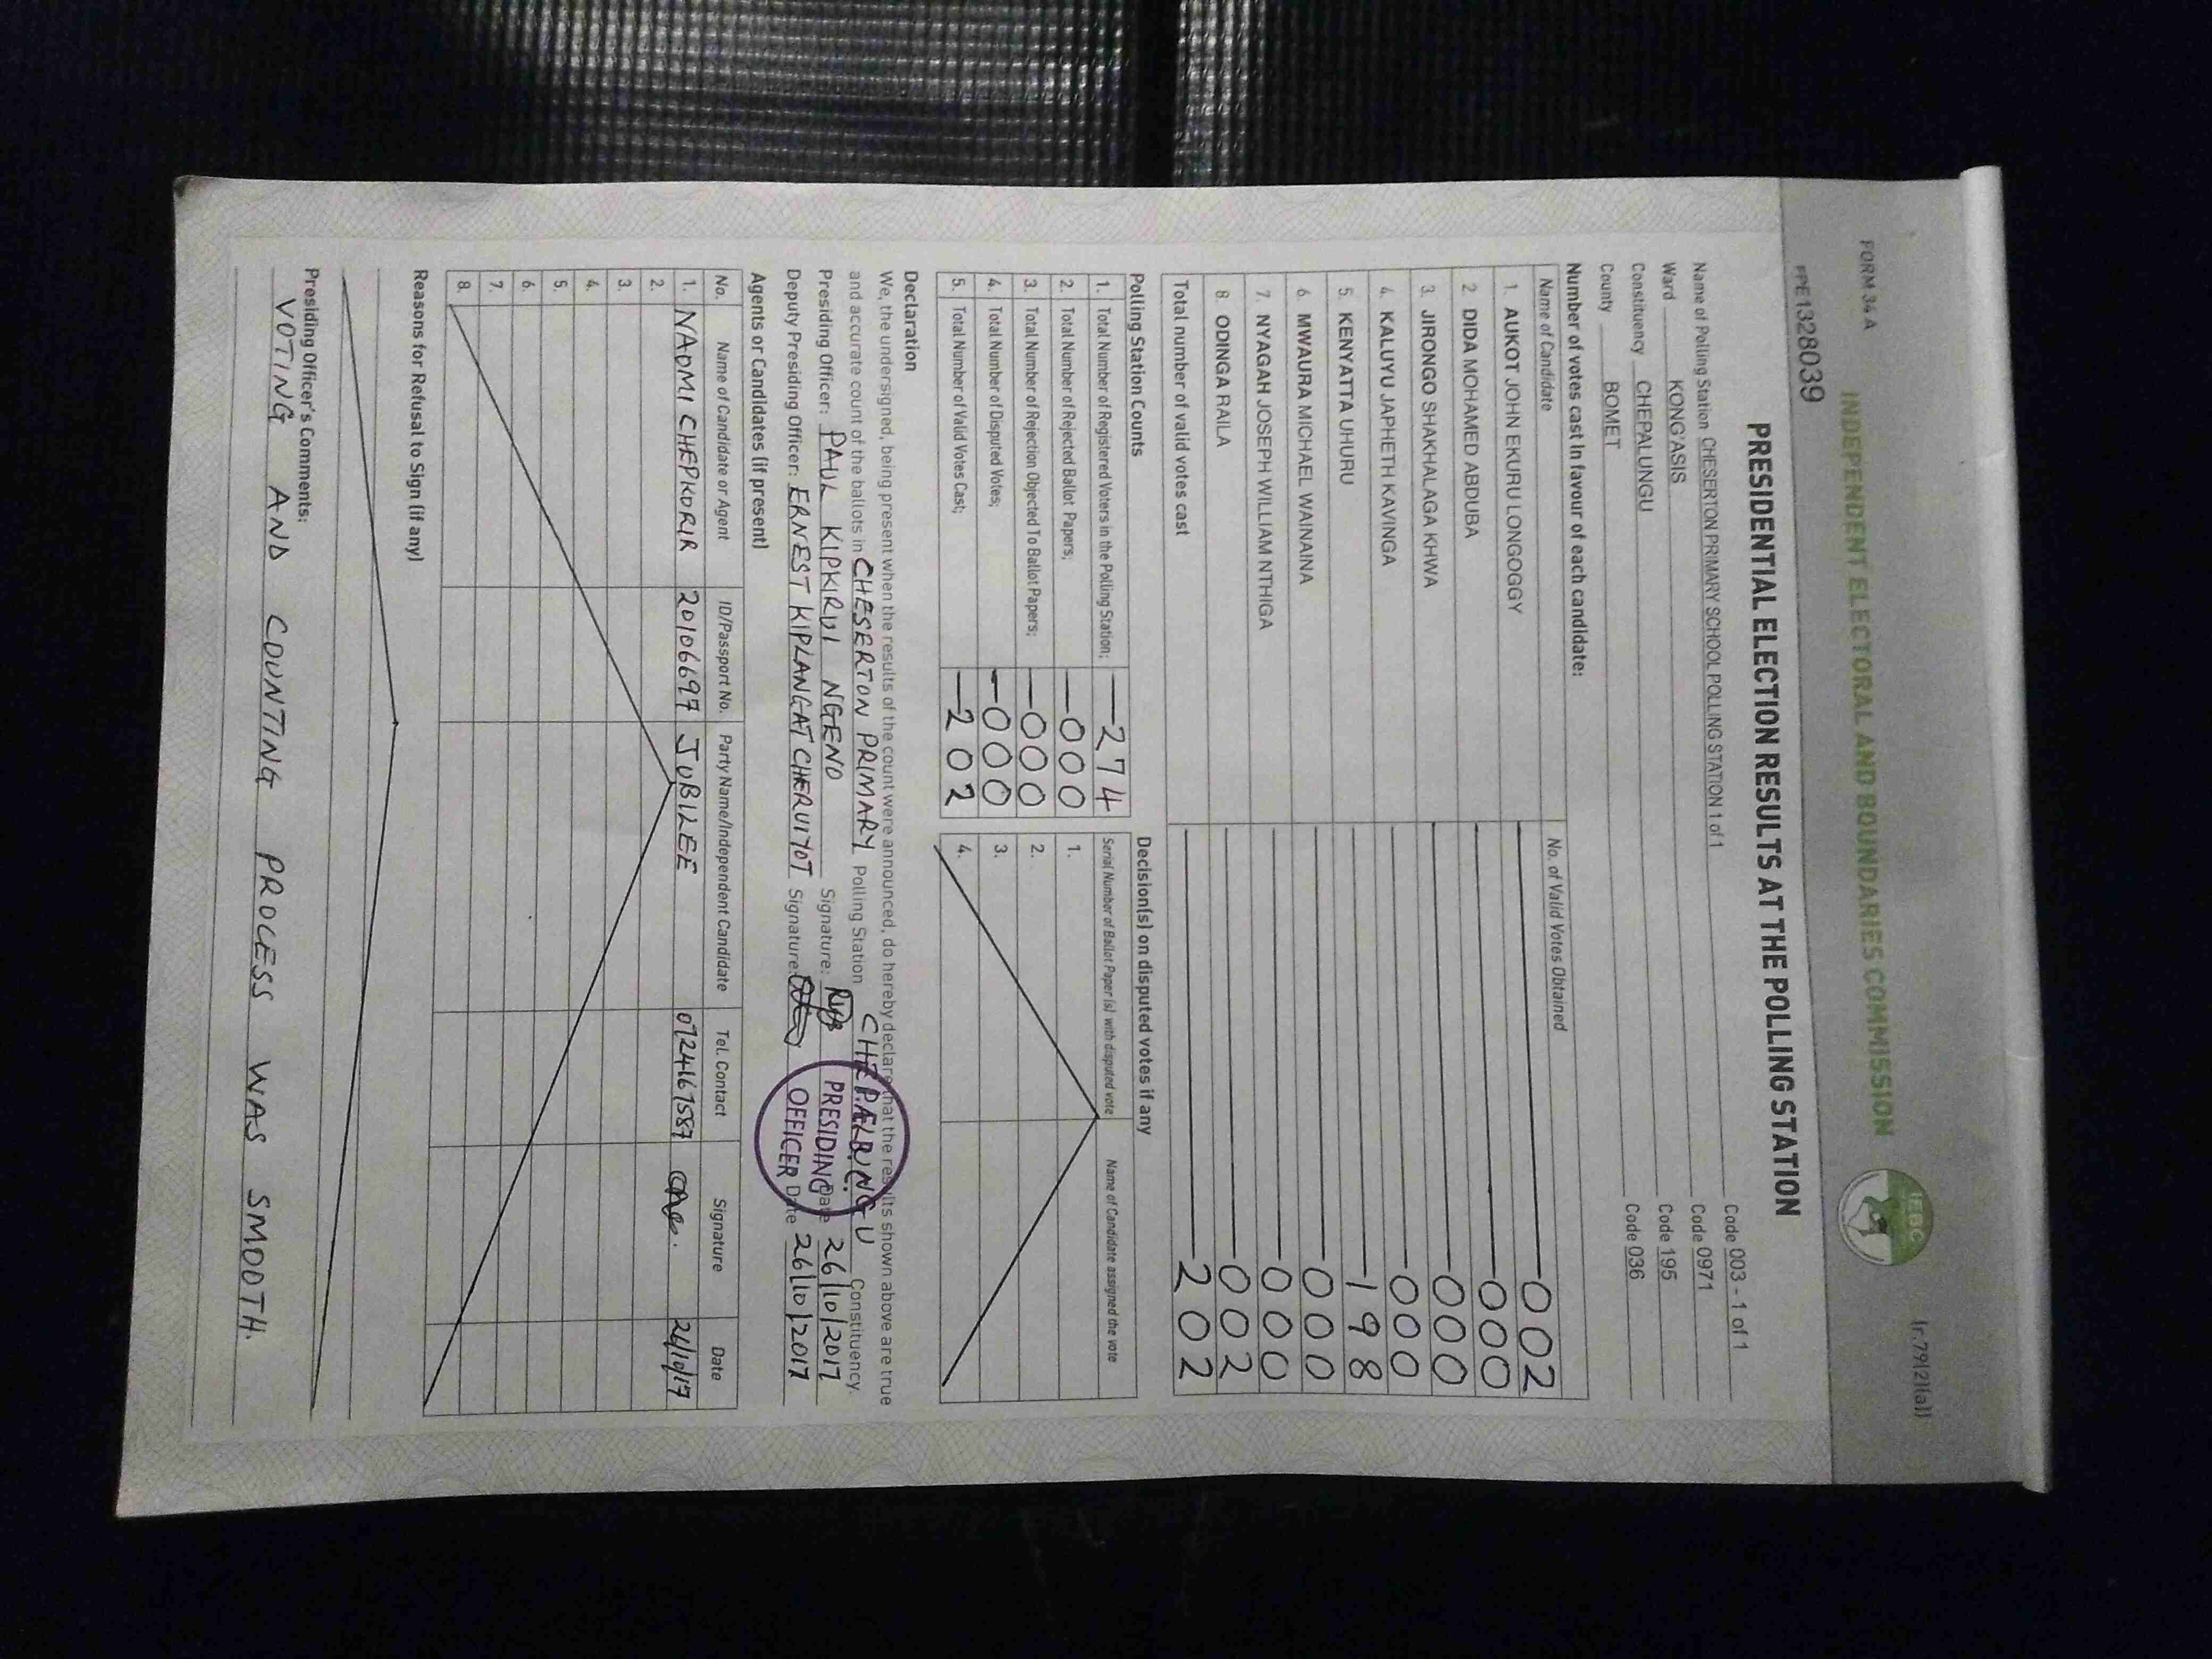 FORM 34 A
(r.79(2)(a))
INDEPENDENT ELECTORAL AND BOUNDARIES COMMISSION
IEBC
PPE1328039
PRESIDENTIAL ELECTION RESULTS AT THE POLLING STATION
Name of Polling Station CHESERTON PRIMARY SCHOOL POLLING STATION 1 of 1 Code 003 - 1 of 1
Ward KONG'ASIS Code 0971
Constituency CHEPALUNGU Code 195
County BOMET Code 036
Number of votes cast in favour of each candidate:
Name of Candidate No. of Valid Votes Obtained
1. AUKOT JOHN EKURU LONGOGGY 002
2 DIDA MOHAMED ABDUBA 000
3. JIRONGO SHAKHALAGA KHWA 000
4. KALUYU JAPHETH KAVINGA 000
5. KENYATTA UHURU 198
6 MWAURA MICHAEL WAINAINA 000
7. NYAGAH JOSEPH WILLIAM NTHIGA 000
8 ODINGA RAILA 002
Total number of valid votes cast 202
Polling Station Counts
1. Total Number of Registered Voters in the Polling Station; 274
2. Total Number of Rejected Ballot Papers; 000
3. Total Number of Rejection Objected To Ballot Papers; 000
4. Total Number of Disputed Votes; 000
5. Total Number of Valid Votes Cast; 202
Decision(s) on disputed votes if any
Serial Number of Ballot Paper (s) with disputed vote Name of Candidate assigned the vote
1.
2.
3.
4.
Declaration
We, the undersigned, being present when the results of the count were announced, do hereby declare that the results shown above are true
and accurate count of the ballots in CHESERTON PRIMARY Polling Station CHEPALUNGU Constituency.
Presiding Officer: PAUL KIPKIRUI NGENO Signature: Date 26/10/2017
Deputy Presiding Officer: ERNEST KIPLANGAT CHERUIYOT Signature: Date 26/10/2017
PRESIDING
OFFICER
Agents or Candidates (if present)
No. Name of Candidate or Agent ID/Passport No. Party Name/Independent Candidate Tel. Contact Signature Date
1. NAOMI CHEPKORIR 20106697 JUBILEE 0724167587
2.
3.
4.
5.
6.
7.
8.
Reasons for Refusal to Sign (if any)
Presiding Officer's Comments:
VOTING AND COUNTING PROCESS WAS SMOOTH.